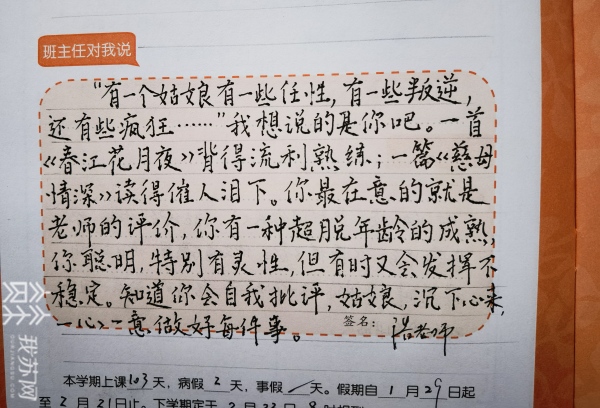 班主任对我说
“有一个姑娘有一些任性,有一些叛逆,
还有些疯狂……”我想说的是你吧。一首
《春江花月夜》背得流利熟练;一篇《慈母
情深》读得催人泪下。你最在意的就是
老师的评价,你有一种超脱年龄的成熟,
你聪明,特别有灵性,但有时又会发挥不
稳定。知道你会自我批评,姑娘,沉下心来,
一心一意做好每件事。 签名: 浩老师
本学期上课103天,病假2天,事假/天。假期自1月29日起
至2月21日止。下学期定于2月22日8时报到
我苏网